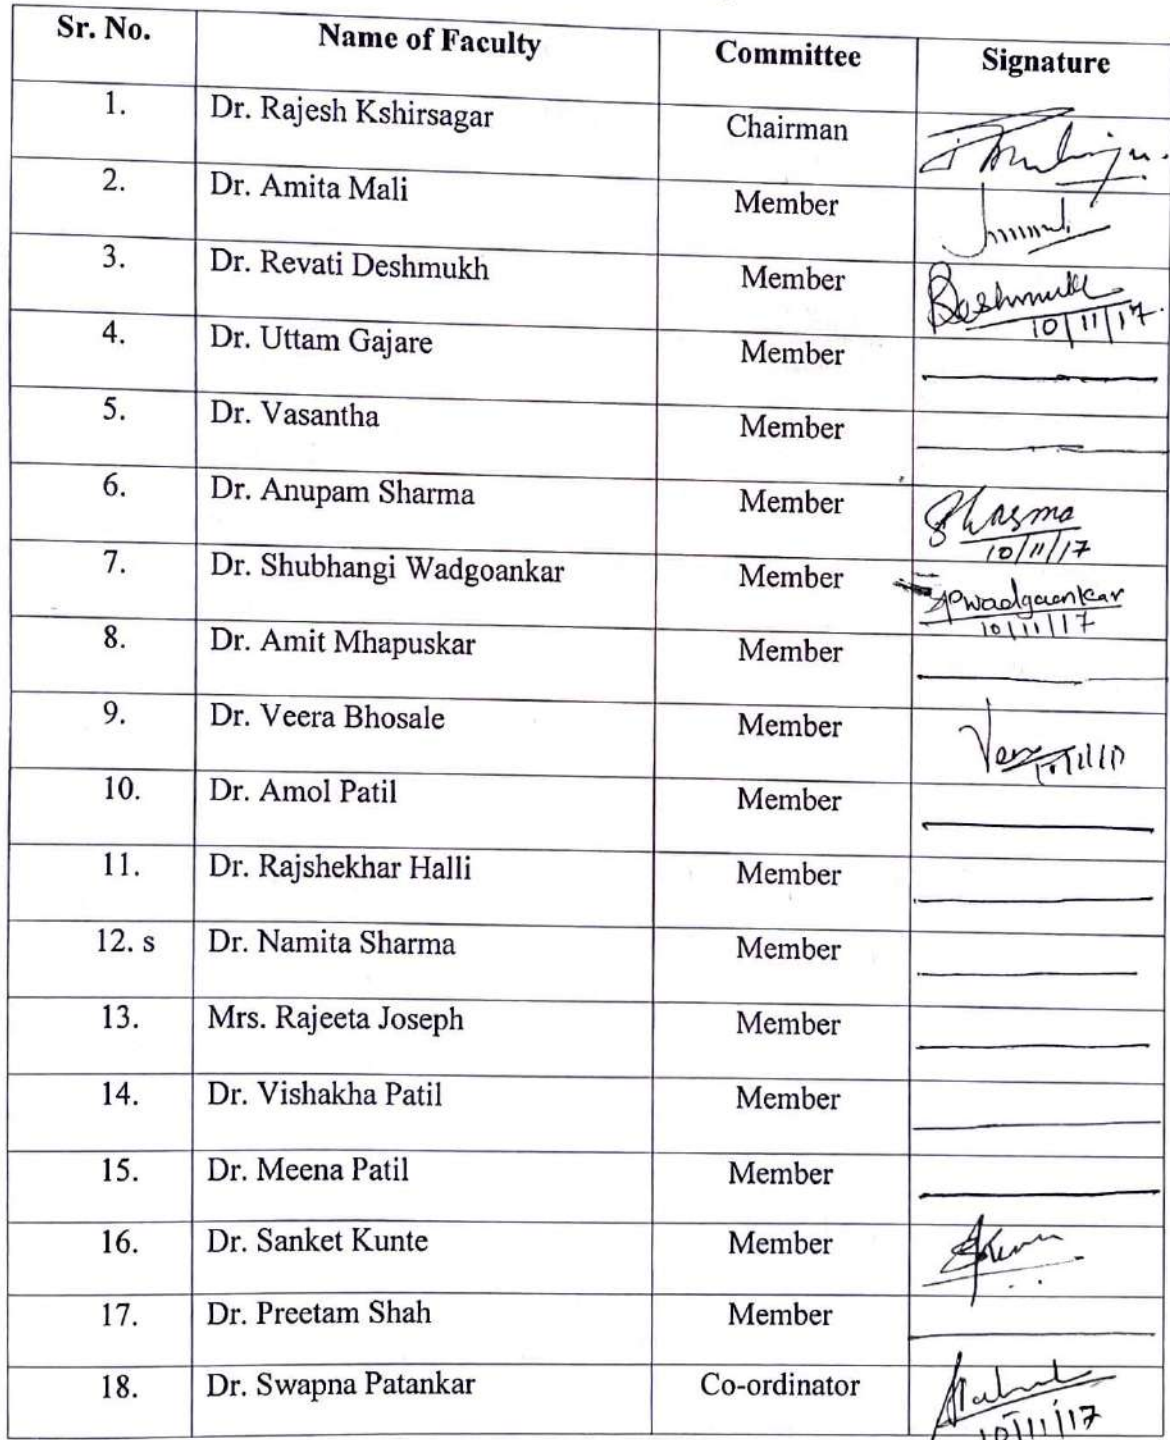 Sr. No. Name of Faculty Committee Signature
1. Dr. Rajesh Kshirsagar Chairman
2. Dr. Amita Mali Member
3. Dr. Revati Deshmukh Member Deshmukh
10/11/17.
4. Dr. Uttam Gajare Member
5. Dr. Vasantha Member
6. Dr. Anupam Sharma Member Sharma
10/11/17
7. Dr. Shubhangi Wadgoankar Member SPWadgaonkar
10/11/17
8. Dr. Amit Mhapuskar Member
9. Dr. Veera Bhosale Member
10. Dr. Amol Patil Member
11. Dr. Rajshekhar Halli Member
12. s Dr. Namita Sharma Member
13. Mrs. Rajeeta Joseph Member
14. Dr. Vishakha Patil Member
15. Dr. Meena Patil Member
16. Dr. Sanket Kunte Member
17. Dr. Preetam Shah Member
18. Dr. Swapna Patankar Co-ordinator
10/11/17